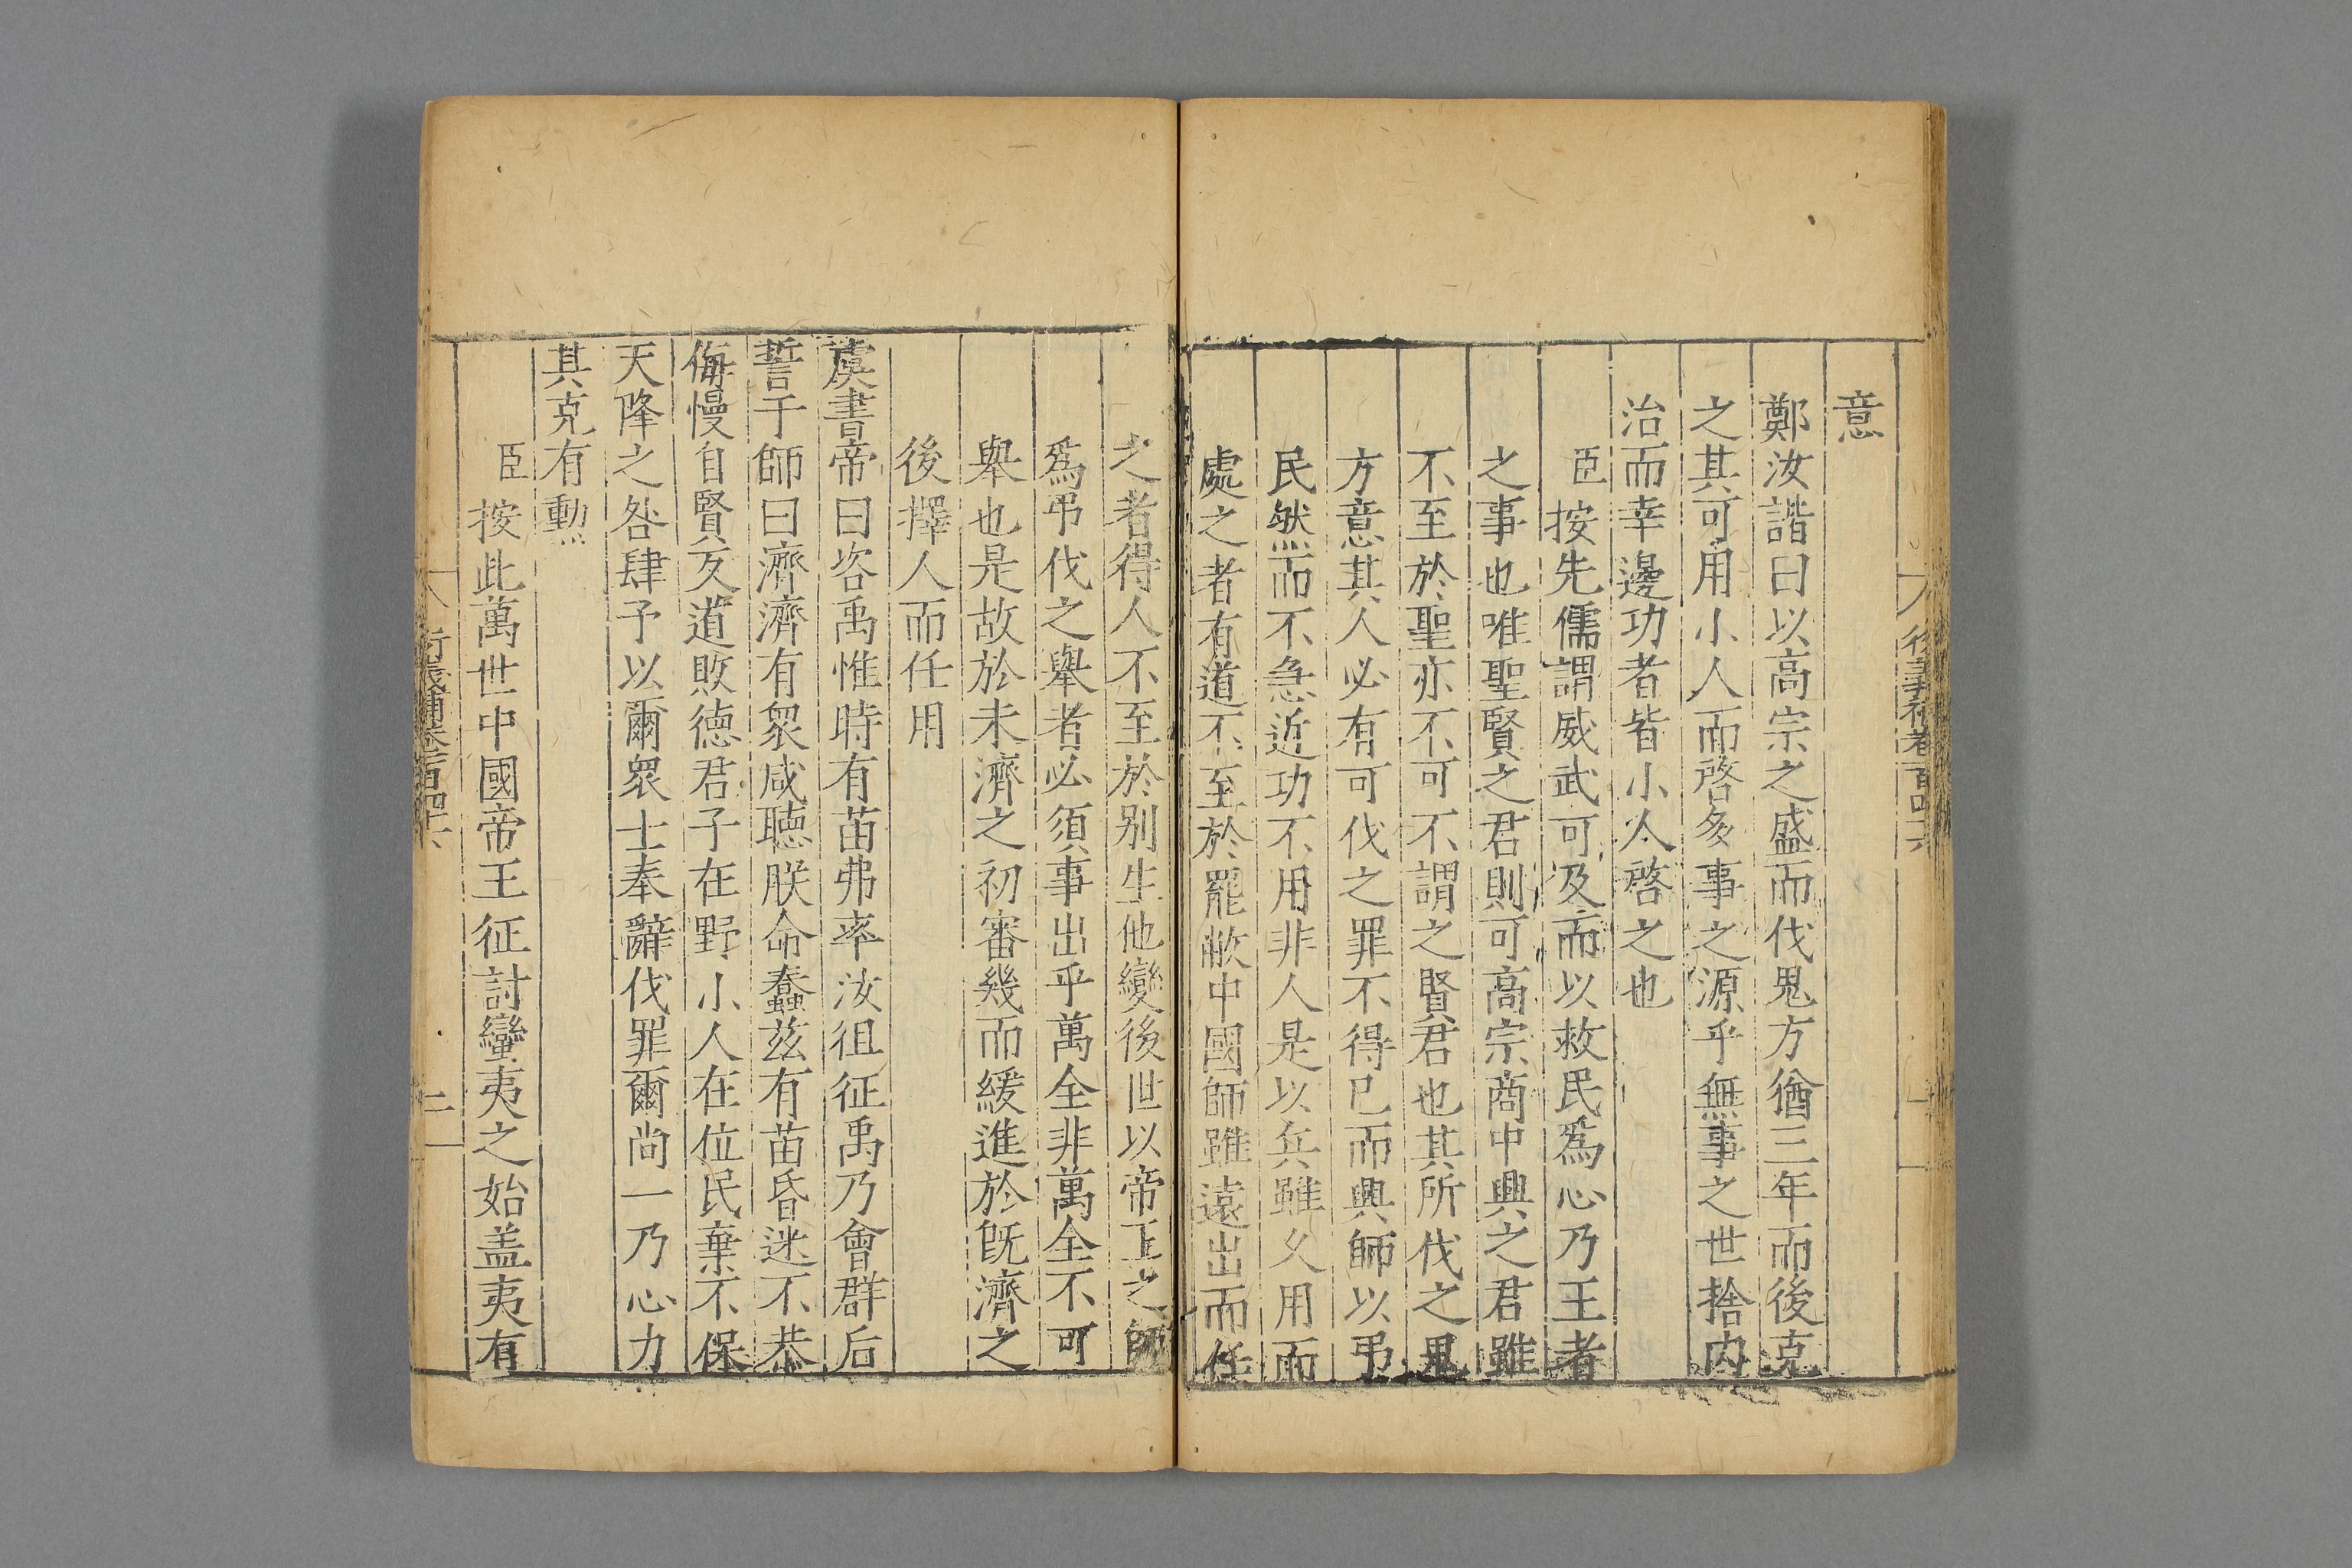 意
鄭汝諧曰以高宗之盛而伐鬼方猶三年而後克
之其可用小人而啓多事之源乎無事之世捨内
治而幸邊功者皆小人啓之也
臣按先儒謂威武可及而以救民爲心乃王者
之事也唯聖賢之君則可高宗商中興之君雖
不至於聖亦不可不謂之賢君也其所伐之鬼
方意其人必有可伐之罪不得已而興師以弔
民然而不急近功不用非人是以兵雖久用而
處之者有道不至於罷敝中國師雖遠出而任
之者得人不至於别生他變後世以帝王之師
爲弔伐之舉者必須事出乎萬全非萬全不可
舉也是故於未濟之初審幾而緩進於旣濟之
後擇人而任用
虞書帝曰咨禹惟時有苗弗率汝徂征禹乃會群后
誓于師曰濟濟有衆咸聽朕命蠢兹有苗昏迷不恭
侮慢自賢反道敗德君子在野小人在位民棄不保
天降之咎肆予以爾衆士奉辭伐罪爾尚一乃心力
其克有勲
臣按此萬世中國帝王征討蠻夷之始盖夷有
衍義補卷百四六
二